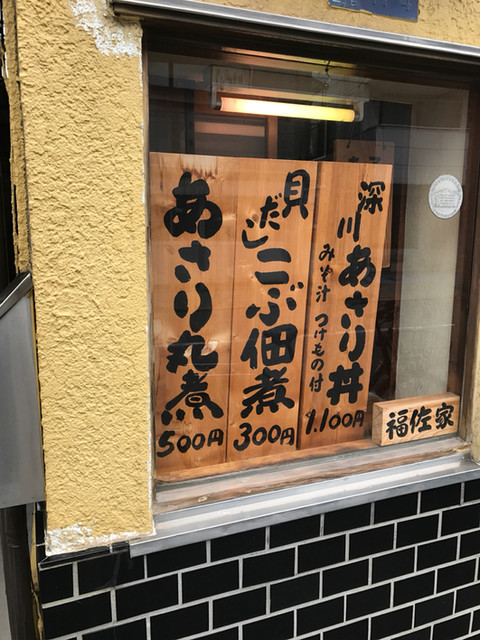 深川
あさり丼
みそ汁 つけもの付
1.100円
貝だし
こぶ佃煮
300円
あさり丸煮
500円
福佐家